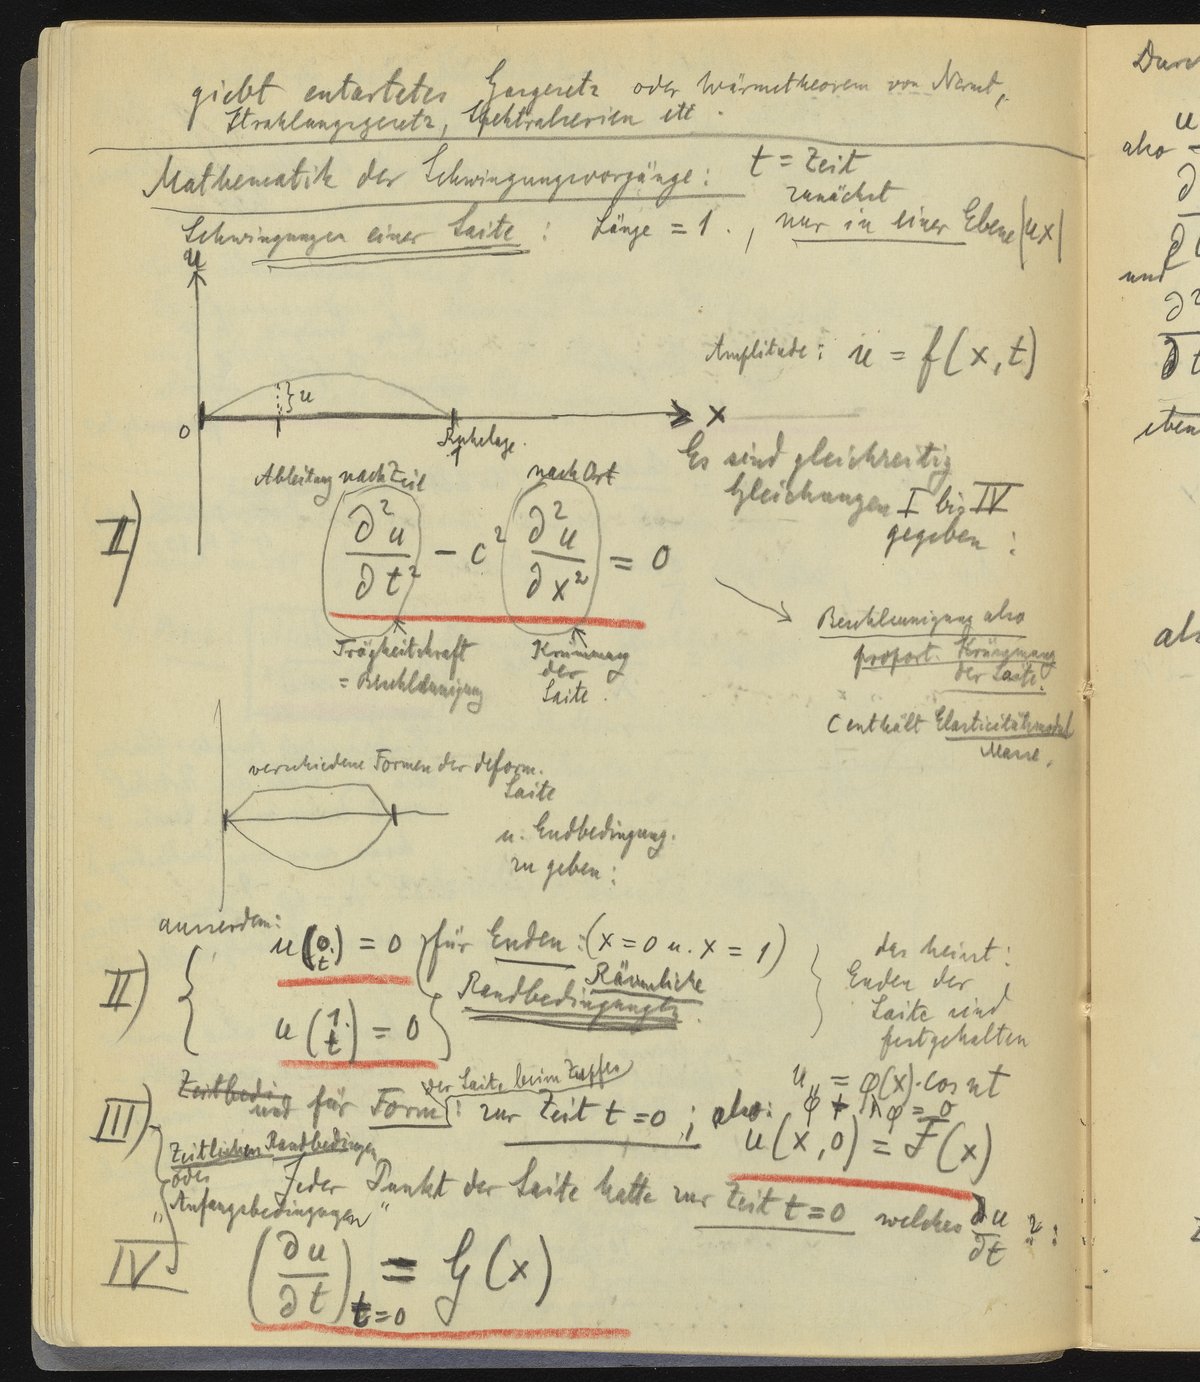 giebt entartetes Gasgesetz oder Wärmetheorem von Nernst,
Strahlungsgesetz, Spektralserien etc.
Mathematik der Schwingungsvorgänge: t = Zeit
zunächst
Schwingungen einer Saite: Länge = 1., nur in einer Ebene (ux)
u
Amplitude: u = f(x,t)
u
0
x
Ruhelage.
1
Es sind gleichzeitig
Gleichungen I bis IV
gegeben:
Ableitung nach Zeit nach Ort
I) ∂²u/∂t² − c² ∂²u/∂x² = 0
Trägheitskraft
= Beschleunigung
Krümmung
der
Saite.
Beschleunigung also
proport. Krümmung
der Saite.
c enthält Elasticitätsmodul
Masse.
verschiedene Formen der deform.
Saite
u. Endbedingung.
zu geben:
ausserdem:
II) u(0,t) = 0 für Enden: (x = 0 u. x = 1)
Räumliche
Randbedingungen.
u(1,t) = 0
das heisst:
Enden der
Saite sind
festgehalten
der Saite beim Zupfen
Zeitbedig
III) und für Form: zur Zeit t = 0; also:
u = φ(x)·cos nt
φ'' + λφ = 0
u(x,0) = F(x)
Zeitlichen Randbedingen
oder
„Anfangsbedingungen“
Jeder Punkt der Saite hatte zur Zeit t = 0 welches ∂u/∂t ?:
IV) (∂u/∂t)t=0 = G(x)
Durc
u
also
∂
und
∂²
∂t
eben
als